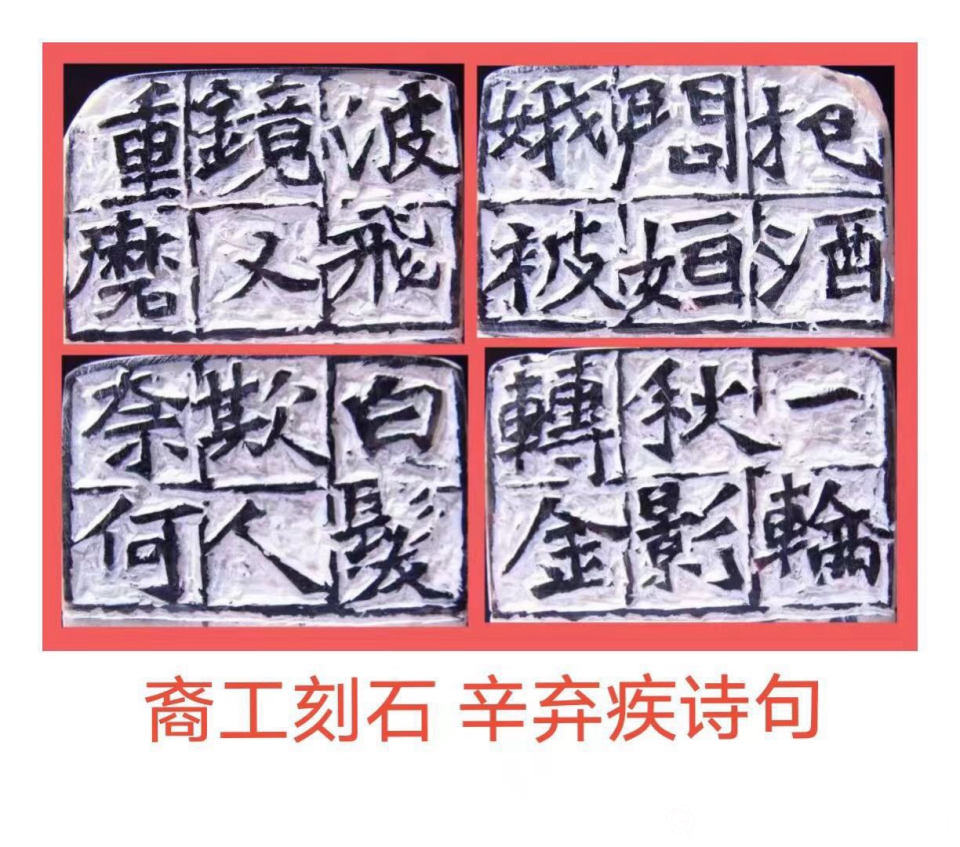 一輪
秋影
轉金
波飛
鏡又
重磨
把酒
問姮
娥被
白髮
欺人
奈何
裔工刻石 辛弃疾诗句